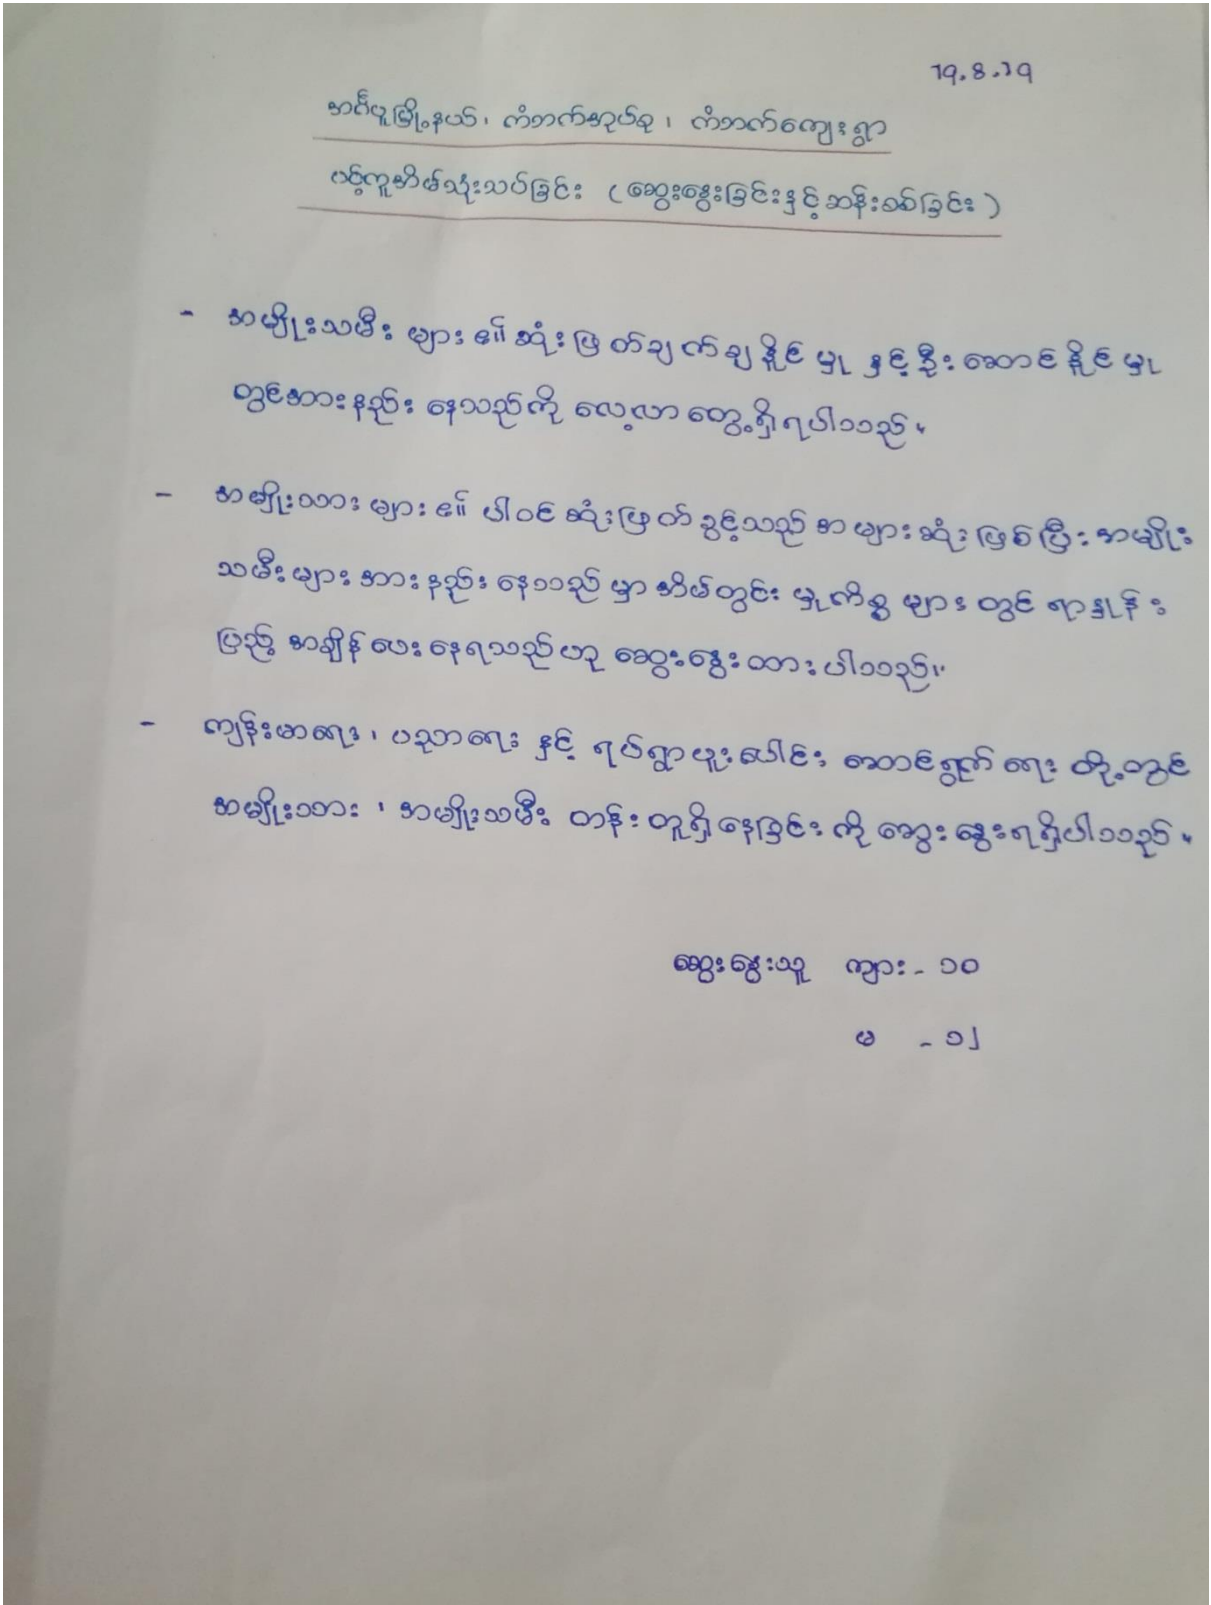 19.8.19
အင်္ဂပူမြို့နယ်၊ ကံဘက်အုပ်စု၊ ကံဘက်ကျေးရွာ
ပင့်ကူအိမ်သုံးသပ်ခြင်း (ဆွေးနွေးခြင်းနှင့်ဆန်းစစ်ခြင်း)
- အမျိုးသမီး များ ၏ ဆုံးဖြတ်ချက်ချနိုင်မှု နှင့် ဦးဆောင်နိုင်မှု
တွင်အားနည်း နေသည်ကို လေ့လာတွေ့ရှိရပါသည်။
- အမျိုးသား များ ၏ ပါဝင်ဆုံးဖြတ်ခွင့်သည် အများဆုံးဖြစ်ပြီး အမျိုး
သမီးများအားနည်း နေသည်မှာ အိမ်တွင်း မှုကိစ္စ များ တွင် ရာနှုန်း
ပြည့် အချိန်ပေးနေရသည်ဟု ဆွေးနွေးထားပါသည်။
- ကျန်းမာရေး၊ ပညာရေး နှင့် ရပ်ရွာပူးပေါင်း ဆောင်ရွက်ရေး တို့တွင်
အမျိုးသား၊ အမျိုးသမီး တန်းတူရှိနေခြင်း ကို ဆွေးနွေးရရှိပါသည်။
ဆွေးနွေးသူ ကျား - ၁၀
မ - ၁၂